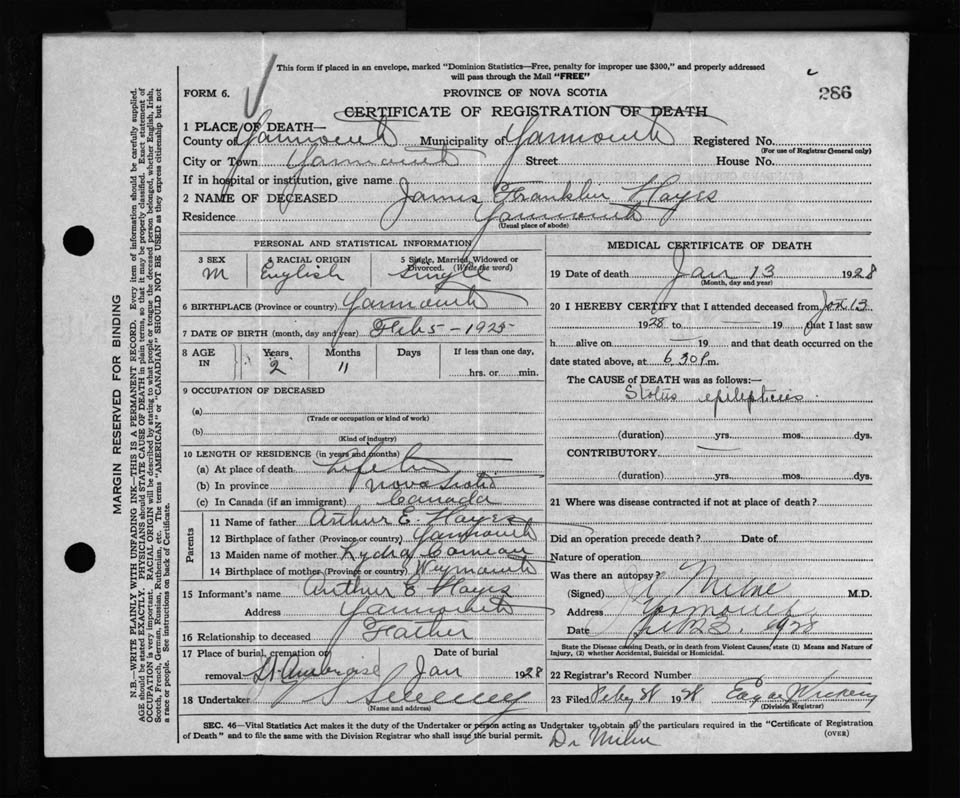 This form if placed in an envelope, marked "Dominion Statistics—Free, penalty for improper use $300," and properly addressed
will pass through the Mail "FREE"
FORM 6.
PROVINCE OF NOVA SCOTIA
286
CERTIFICATE OF REGISTRATION OF DEATH
1 PLACE OF DEATH—
County of Yarmouth Municipality of Yarmouth Registered No.
(For use of Registrar General only)
City or Town Yarmouth Street House No.
If in hospital or institution, give name
2 NAME OF DECEASED James Franklin Hayes
Residence Yarmouth
(Usual place of abode)
PERSONAL AND STATISTICAL INFORMATION
3 SEX 4 RACIAL ORIGIN 5 Single, Married, Widowed or Divorced. (Write the word)
M English Single
6 BIRTHPLACE (Province or country) Yarmouth
7 DATE OF BIRTH (month, day and year) Feb 5 - 1925
8 AGE IN Years Months Days If less than one day,
2 11 hrs. or min.
9 OCCUPATION OF DECEASED
(a)
(Trade or occupation or kind of work)
(b)
(Kind of industry)
10 LENGTH OF RESIDENCE (in years and months)
(a) At place of death Life
(b) In province Nova Scotia
(c) In Canada (if an immigrant) Canada
Parents
11 Name of father Arthur E. Hayes
12 Birthplace of father (Province or country) Yarmouth
13 Maiden name of mother Lydia Comeau
14 Birthplace of mother (Province or country) Weymouth
15 Informant's name Arthur E Hayes
Address Yarmouth
16 Relationship to deceased Father
17 Place of burial, cremation or Date of burial
removal St Ambroise Jan 1928
18 Undertaker V S Sweeney
(Name and address)
MEDICAL CERTIFICATE OF DEATH
19 Date of death Jan 13 1928
(Month, day and year)
20 I HEREBY CERTIFY that I attended deceased from Jan 13
1928 to — 19 that I last saw
h alive on — 19 and that death occurred on the
date stated above, at 6 30 P.m.
The CAUSE of DEATH was as follows:—
Status epilepticus.
(duration) yrs. mos. dys.
CONTRIBUTORY —
(duration) yrs. mos. dys.
21 Where was disease contracted if not at place of death?
Did an operation precede death? Date of
Nature of operation
Was there an autopsy?
(Signed) Milne M.D.
Address Yarmouth
Date 23. 1928
State the Disease causing Death, or in death from Violent Causes, state (1) Means and Nature of
Injury, (2) whether Accidental, Suicidal or Homicidal.
22 Registrar's Record Number
23 Filed 1928 Edgar
(Division Registrar)
SEC. 46—Vital Statistics Act makes it the duty of the Undertaker or person acting as Undertaker to obtain all the particulars required in the "Certificate of Registration
of Death" and to file the same with the Division Registrar who shall issue the burial permit.
(OVER)
Dr Milne
MARGIN RESERVED FOR BINDING
N.B.—WRITE PLAINLY WITH UNFADING INK—THIS IS A PERMANENT RECORD. Every item of information should be carefully supplied.
AGE should be stated EXACTLY. PHYSICIANS should STATE CAUSE OF DEATH in plain terms, so that it may be properly classified. Exact statement of
OCCUPATION is very important. RACIAL ORIGIN will be described by stating to what people or tongue the deceased person belonged, whether English, Irish,
Scotch, French, German, Russian, Ruthenian, etc. The terms "AMERICAN" or "CANADIAN" SHOULD NOT BE USED as they express citizenship but not
a race or people. See instructions on back of Certificate.